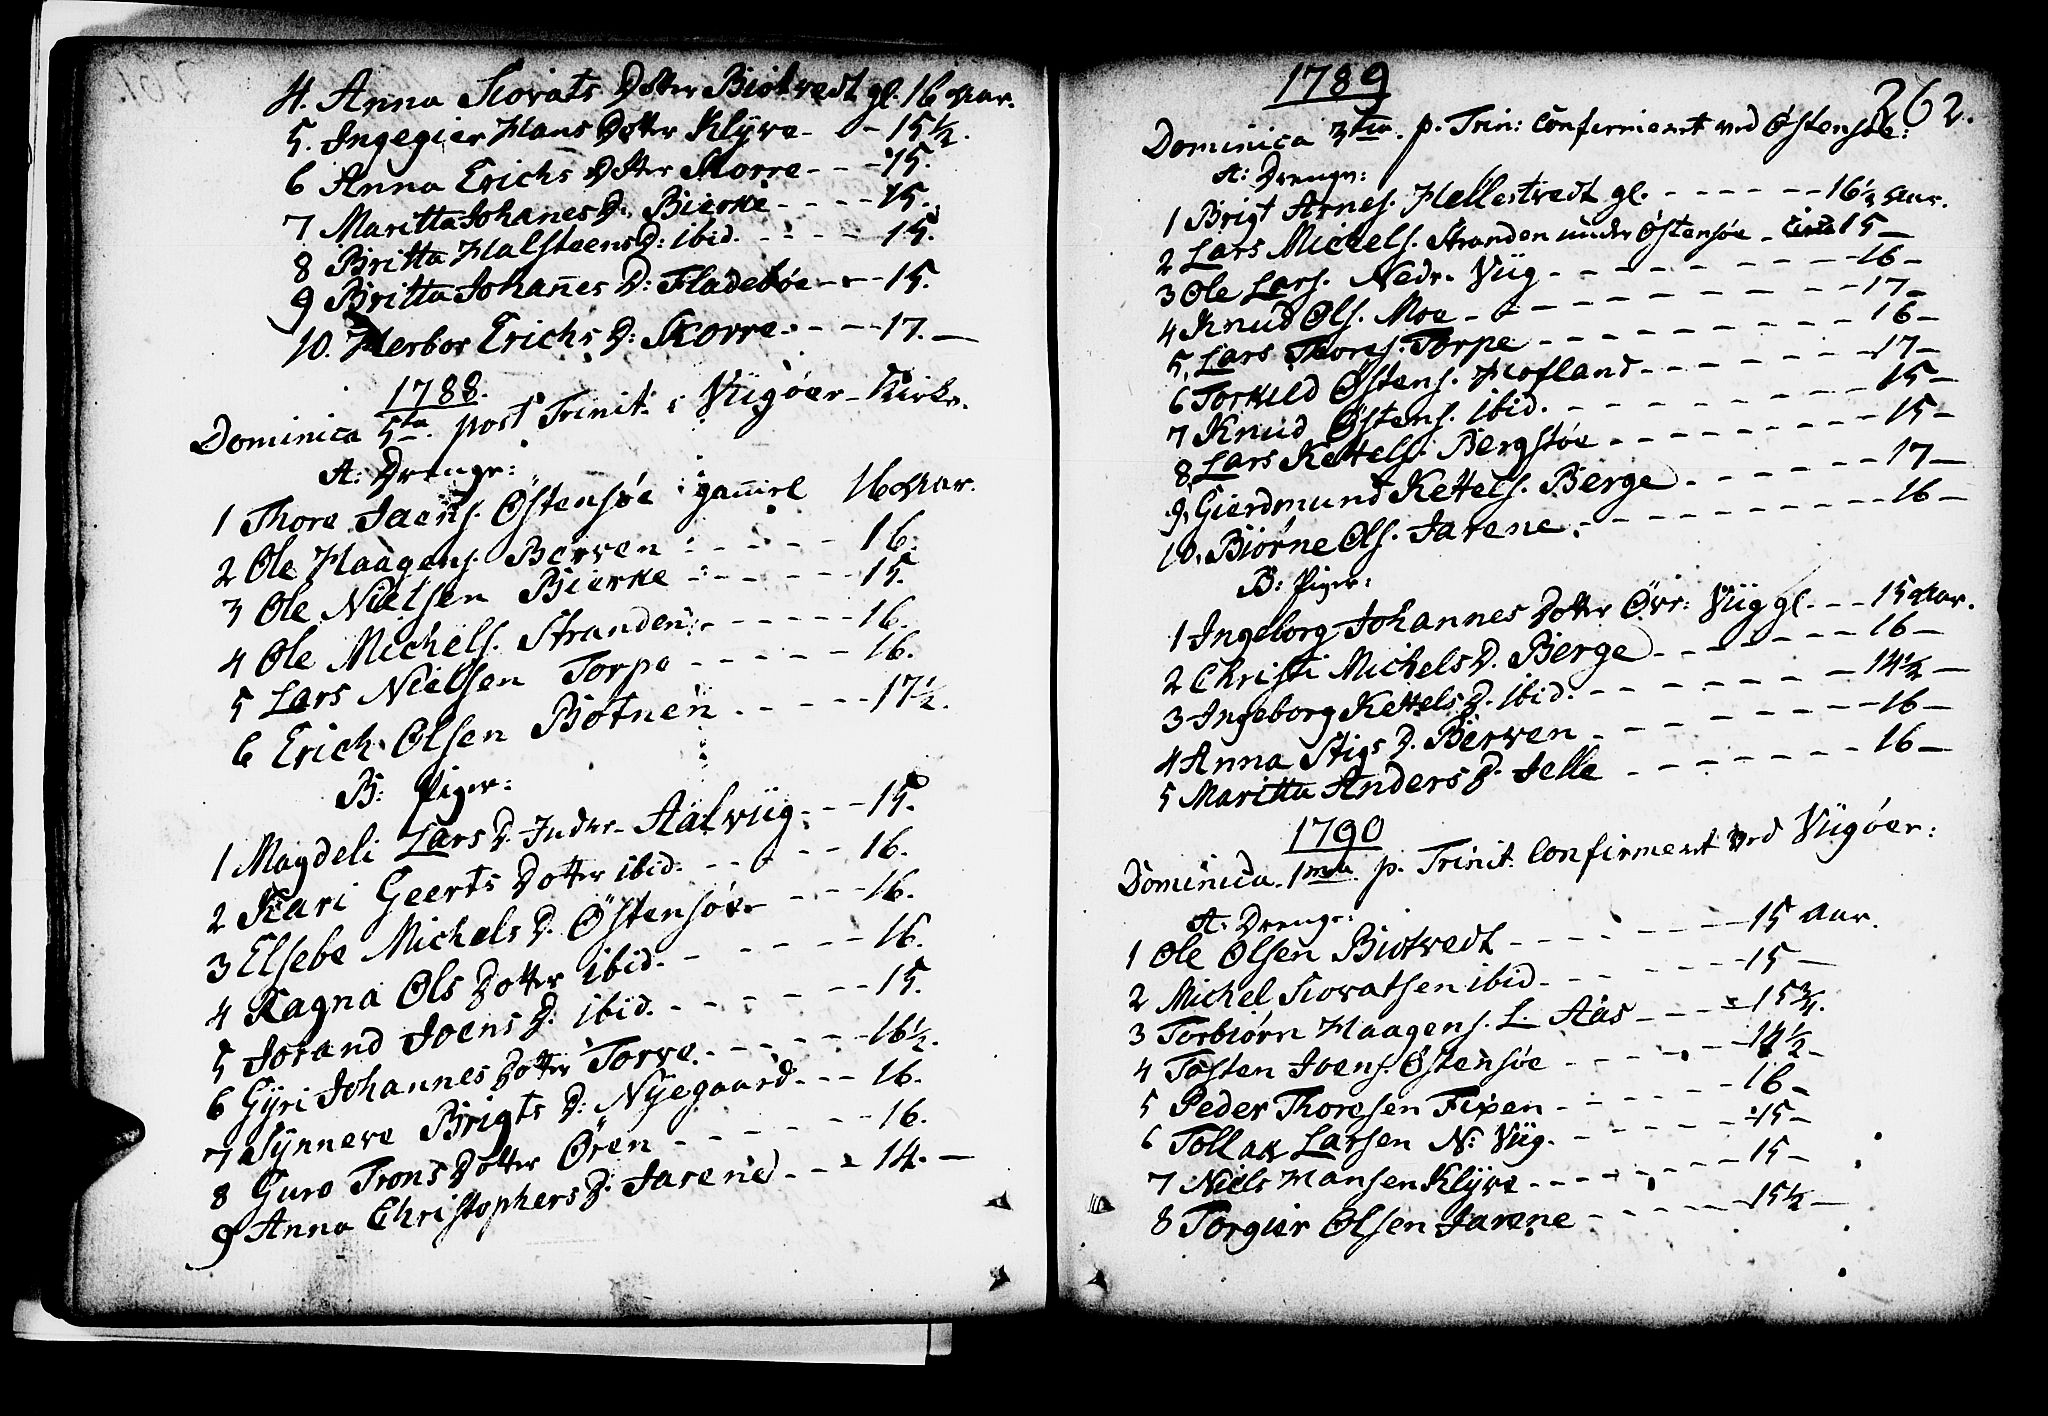 4. Anna Siovats Dotter Biotvedt gl. 16 Aar.
5. Ingegier Hans Dotter Klyve - - - 15½.
6 Anna Erichs Dotter Skorre - - - 15.
7 Maritta Johanes D. Bierke - - - - 15.
8 Britta Halsteens D: ibid. - - - - 15.
9 Britta Johanes D: Fladebøe - - - 15.
10. Herbor Erichs D: Skorre - - - - 17. —
1788.
Dominica 5ta. post Trinit: i Viigøer-Kirke.
A: Drenge:
1 Thore Joens. Østensøe gammel 16 Aar.
2 Ole Haagens. Berven - - - - - 16.
3 Ole Nielsen Bierke - - - - - 15.
4 Ole Michels. Stranden - - - - - 16.
5 Lars Nielsen Torpe - - - - - 16.
6 Erich Olsen Botnen - - - - - 17½.
B: Piger:
1 Magdeli Lars D. Inder-Aalviig - - - 15.
2 Kari Geerts Dotter ibid. - - - - - 16.
3 Elsebe Michels D. Østensøe - - - 16.
4 Ragna Ols Dotter ibid. - - - - - 16.
5 Jorand Joens D. ibid. - - - - - 15.
6 Gyri Johannes Dotter Torve - - - - - 16½.
7 Synneve Brigts D: Nyegaard - - - 16.
8 Guro Trons Dotter Ören - - - - - 16.
9 Anna Christophers D. Jarene - - - 14. —
262.
1789
Dominica 3tia. p. Trin: Confirmeret ved Østensøe:
A: Drenge:
1 Brigt Arnes. Hellestvedt gl. - - - - - 16½ Aar.
2 Lars Michels. Stranden under Østensøe - circa 15 —
3 Ole Lars. Nedr. Viig - - - - - - - 16 -
4 Knud Ols. Moe - - - - - - - - 17 -
5. Lars Thores. Torpe - - - - - - - 16 -
6 Torkild Østens. Hofland - - - - - - 17 -
7 Knud Østens. ibid. - - - - - - - 15 -
8 Lars Kettels. Bergstøe - - - - - - 15 -
9. Gierdmund Kettels. Berge - - - - - 17 -
10. Biørne Ols. Jarene - - - - - - - 16 -
B: Piger:
1 Ingeborg Johannes Dotter Övr: Viig gl. - - - 15 Aar.
2 Christi Michels D. Berge - - - - - - 16 -
3 Ingeborg Kettels D. ibid. - - - - - - 14½ -
4 Anna Stigs D. Berven - - - - - - 16 -
5 Maritta Anders D. Jelle - - - - - - 16 -
1790
Dominica 1ma p. Trinit: Confirmeret ved Viigøer:
A: Drenge:
1 Ole Olsen Biotvedt - - - - - - 15 Aar.
2 Michel Siovatsen ibid - - - - - - 15 —
3 Torbiørn Haagens. L. Aas - - - - 15¾.
4 Tosten Joens. Østensøe - - - - - 14½ -
5 Peder Thoresen Fixen - - - - - 16 -
6 Tollak Larsen N: Viig. - - - - - 15 -
7 Niels Hansen Klyve - - - - - - 15 -
8 Torgier Olsen Jarene - - - - - 15½ —